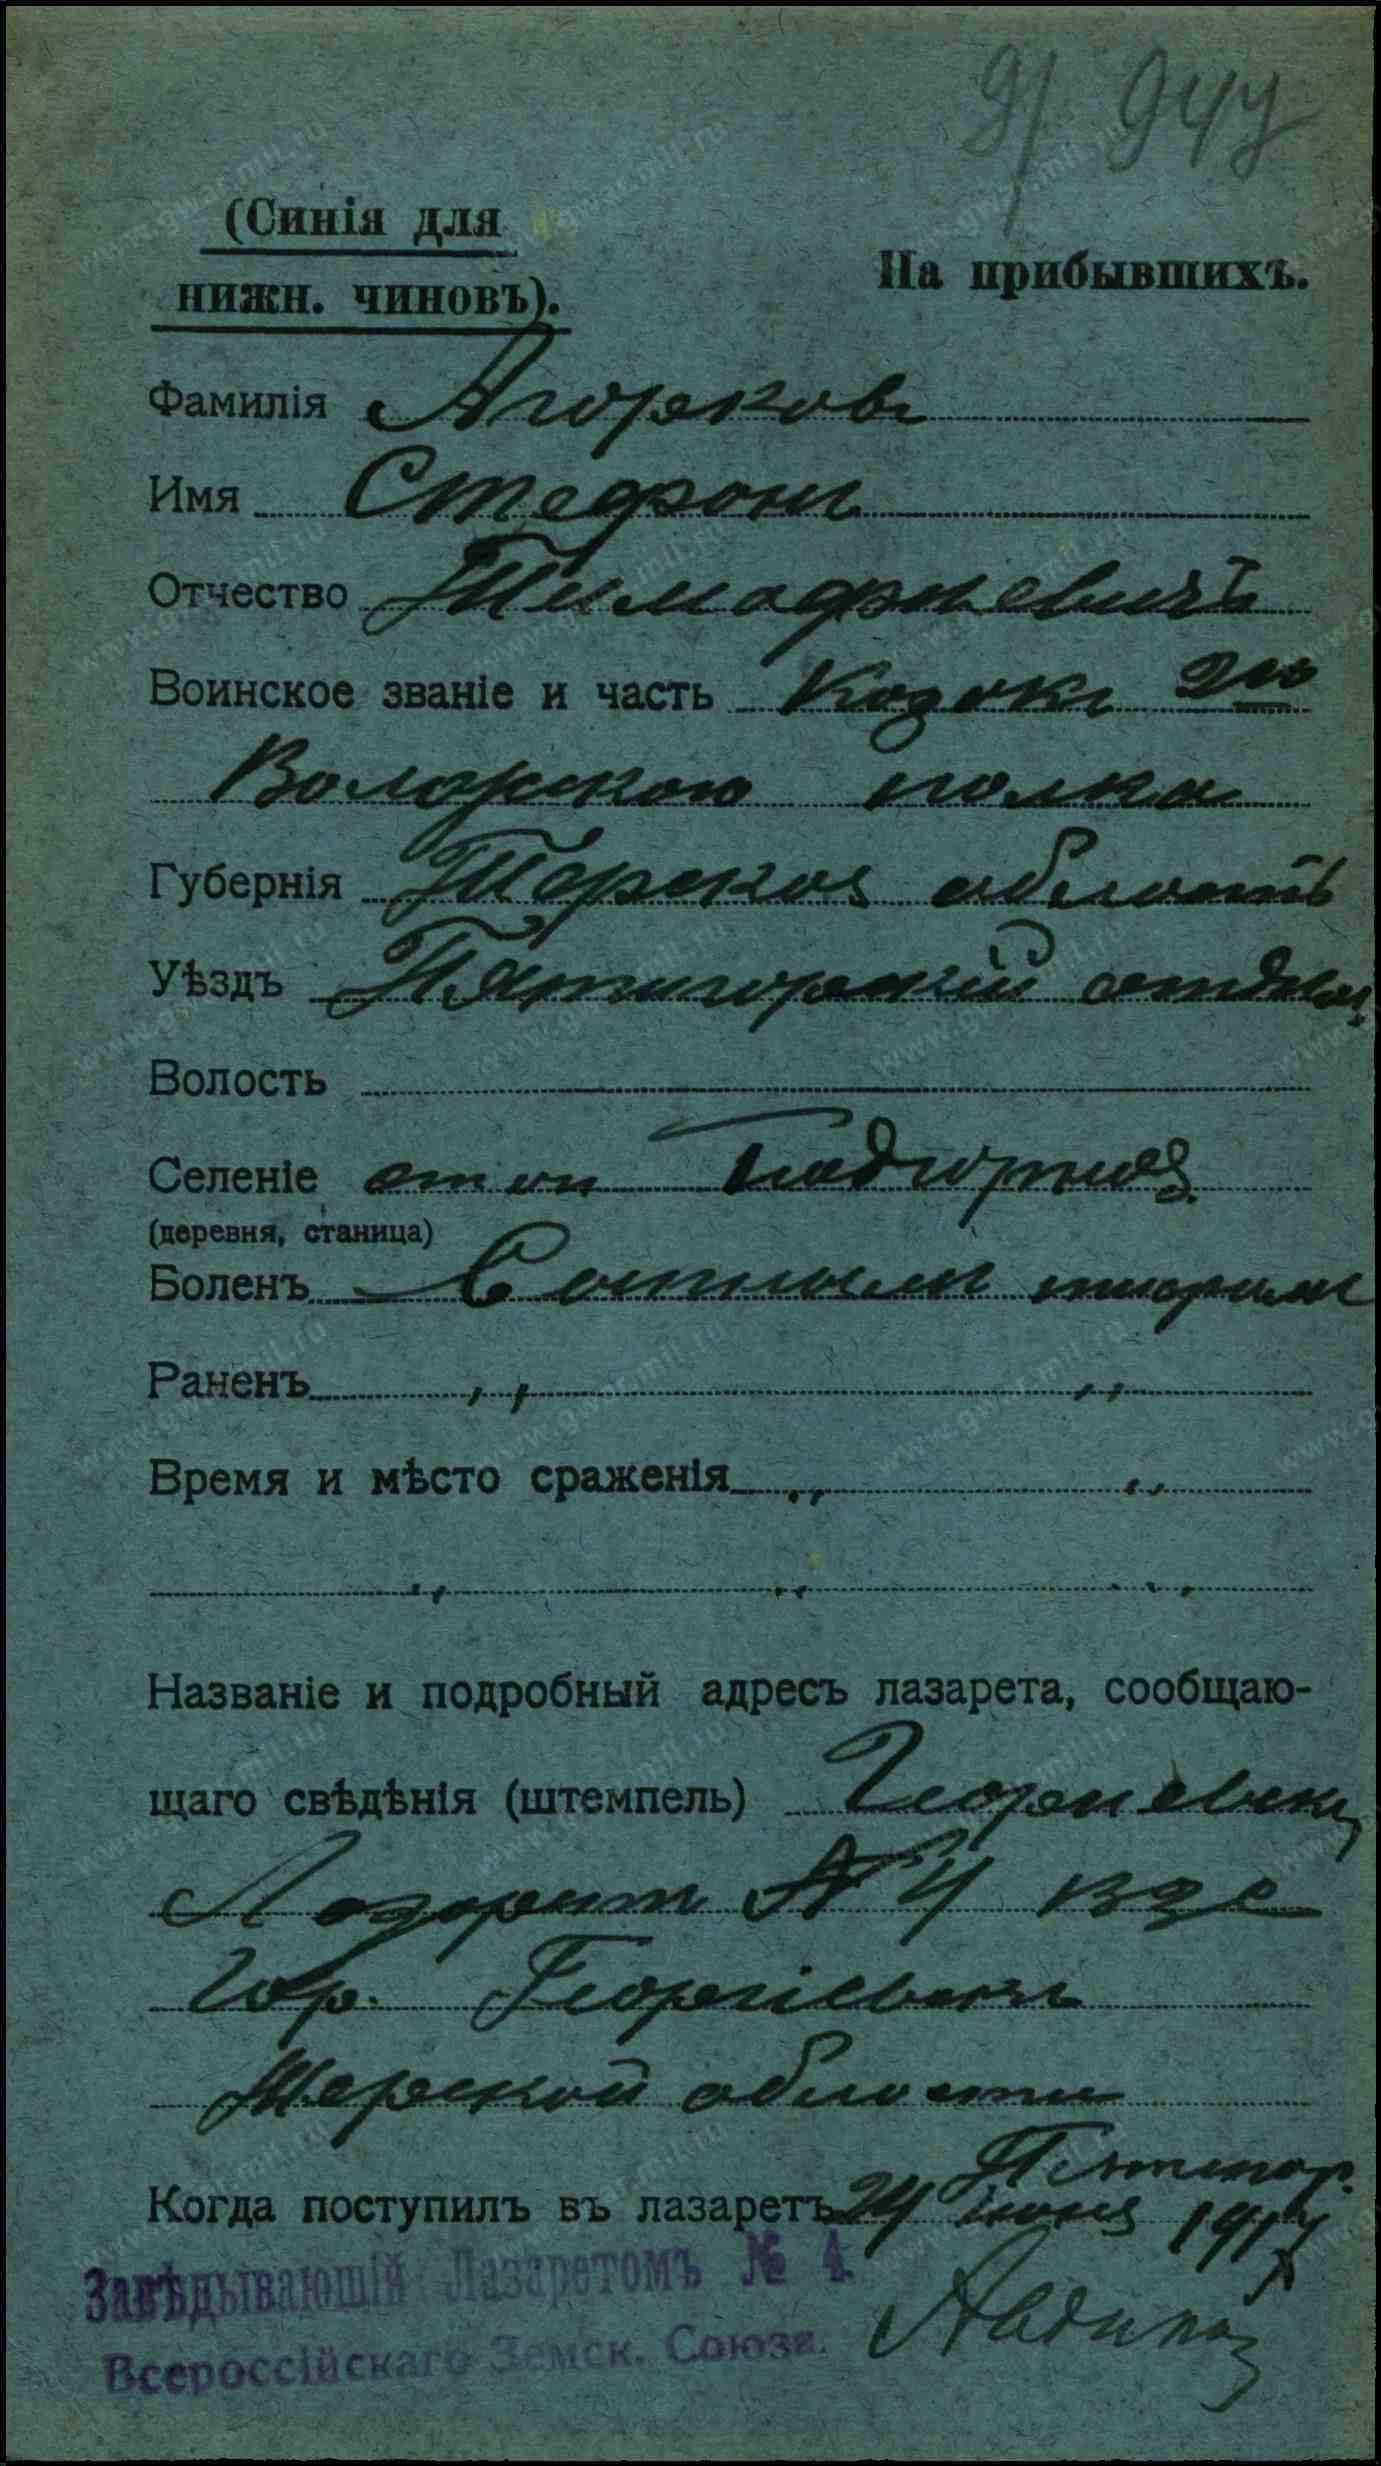 9/ 944
(Синія для
нижн. чиновъ).
На прибывшихъ.
Фамилія Ягорковъ
Имя Стефонъ
Отчество Тимафиевичъ
Воинское званіе и часть Козокъ 2го
Волжского полка
Губернія Терская область
Уѣздъ Пятигорскій отдел
Волость
Селеніе стан Подгорная
(деревня, станица)
Боленъ
Раненъ " "
Время и мѣсто сраженія " "
" " "
Названіе и подробный адресъ лазарета, сообщаю-
щаго свѣдѣнія (штемпель) Георгиевски
Лозорет № 4 ВЗС
Гор. Георгіевскъ
Терской области
Пятигор.
Когда поступилъ въ лазаретъ 24 июня 1917
Завѣдывающій Лазаретомъ № 4.
Всероссійскаго Земск. Союза.
www.gwar.mil.ru